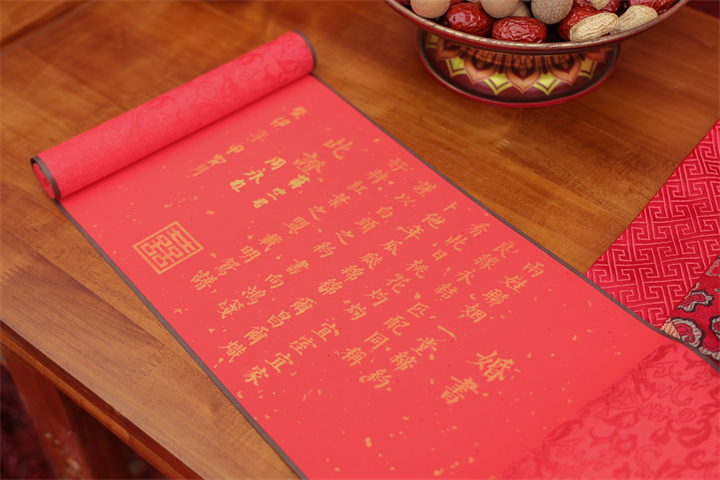 婚書
兩姓聯姻 一堂締約
良緣永結 匹配同稱
看此日桃花灼灼 宜室宜家
卜他年瓜瓞綿綿 爾昌爾熾
謹以白頭之約 書向鴻箋
好將紅葉之盟 載明鴛譜
此證
周承
月
囍